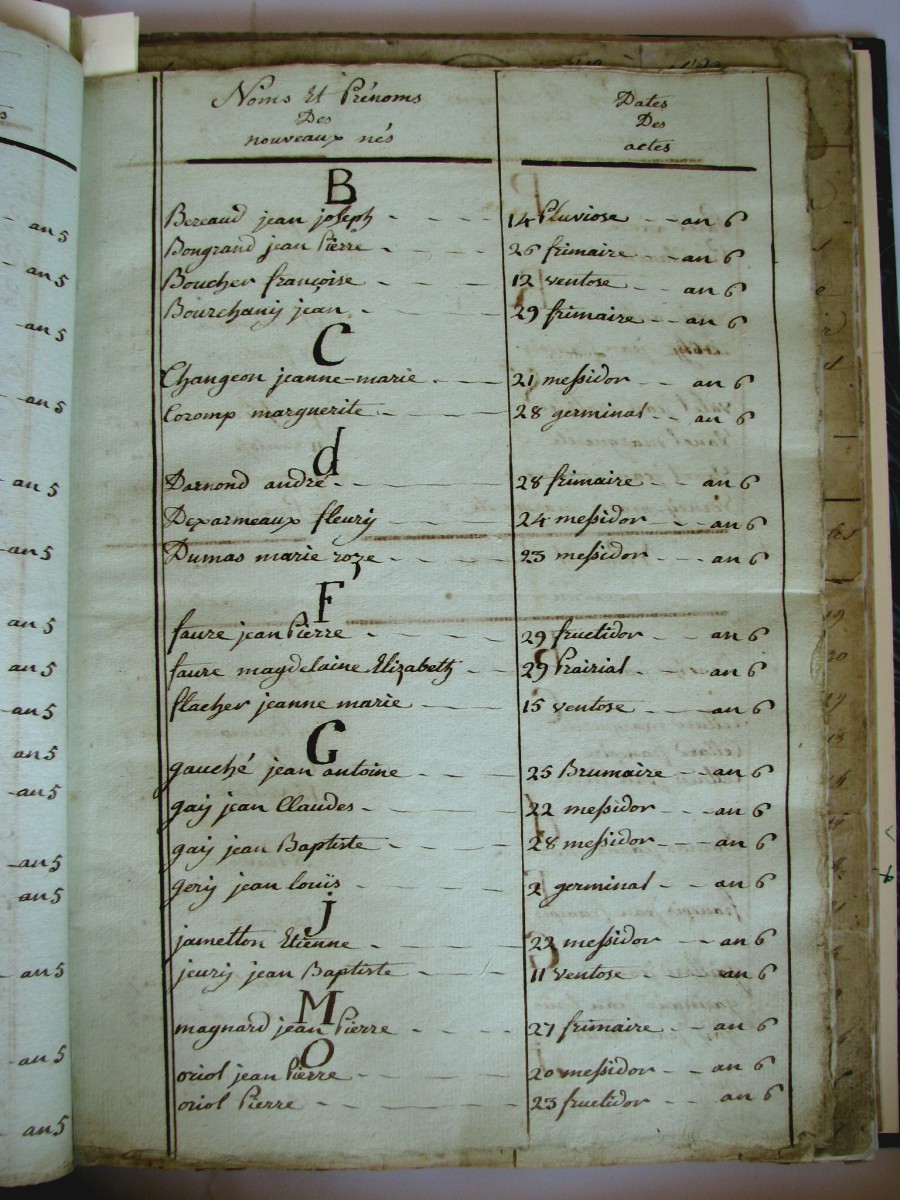 Noms Et Prénoms
Des
nouveaux nés
Dates
Des
actes
B
Bereaud jean joseph - - - - 14 Pluviose - - an 6
Bongrand jean Pierre - - - - 26 frimaire - - an 6
Boucher françoise - - - - 12 ventose - - an 6
Bourchany jean - - - - 29 frimaire - - an 6
C
Changeon jeanne-marie - - - 21 messidor - - an 6
Coromp marguerite - - - - 28 germinal - - an 6
d
Darnond andré - - - - 28 frimaire - - an 6
Dexarmeaux fleury - - - - 24 messidor - - an 6
Dumas marie roze - - - - 23 messidor - - an 6
F
faure jean Pierre - - - - 29 fructidor - - an 6
faure magdelaine Elizabeth - - 29 Prairial - - an 6
flacher jeanne marie - - - 15 ventose - - an 6
G
gauché jean antoine - - - 25 Brumaire - - an 6
gay jean Claudes - - - - 22 messidor - - an 6
gay jean Baptiste - - - - 28 messidor - - an 6
gery jean louïs - - - - 2 germinal - - an 6
j
jametton Etienne - - - - 22 messidor - - an 6
jeury jean Baptiste - - - 11 ventose - - an 6
M
magnard jean Pierre - - - 27 frimaire - - an 6
O
oriol jean Pierre - - - - 20 messidor - - an 6
oriol Pierre - - - - 23 fructidor - - an 6
an 5
an 5
an 5
an 5
an 5
an 5
an 5
an 5
an 5
an 5
an 5
an 5
an 5
an 5
an 5
an 5